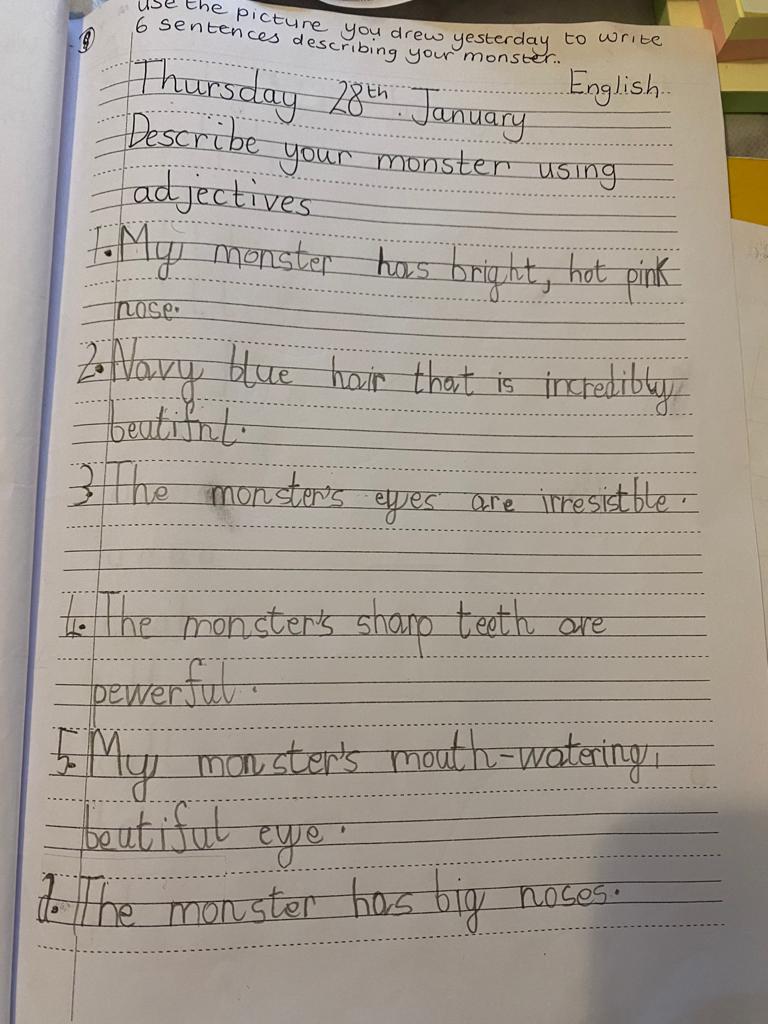 use the picture you drew yesterday to write
6 sentences describing your monster.
English
Thursday 28th January
Describe your monster using
adjectives
1. My monster has bright, hot pink
nose.
2. Navy blue hair that is incredibly
beutifnl.
3 The monster's eyes are irresistble.
4. The monster's sharp teeth are
pewerful.
5. My monster's mouth-watering,
beutiful eye.
The monster has big noses.